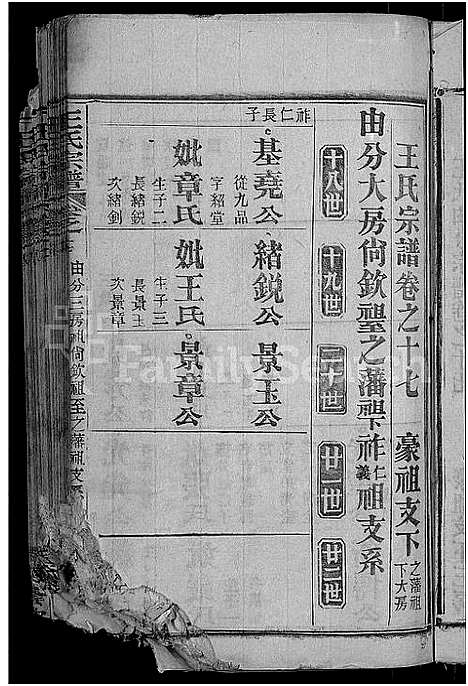 王氏宗譜卷之十七 豪祖支下 之藩祖下大房
由分大房尙欽祖至之藩祖下祚仁義祖支系
十八世 十九世 二十世 廿一世 廿二世
祚仁長子
基堯公 緒銳公 景玉公
從九品
字紹堂
妣章氏 妣王氏 景章公
生子二 生子三
長緒銳 長景玉
次緒釗 次景章
王氏宗譜 卷之十七
由分三房祖尙欽祖至之藩祖支系
FamilySearch